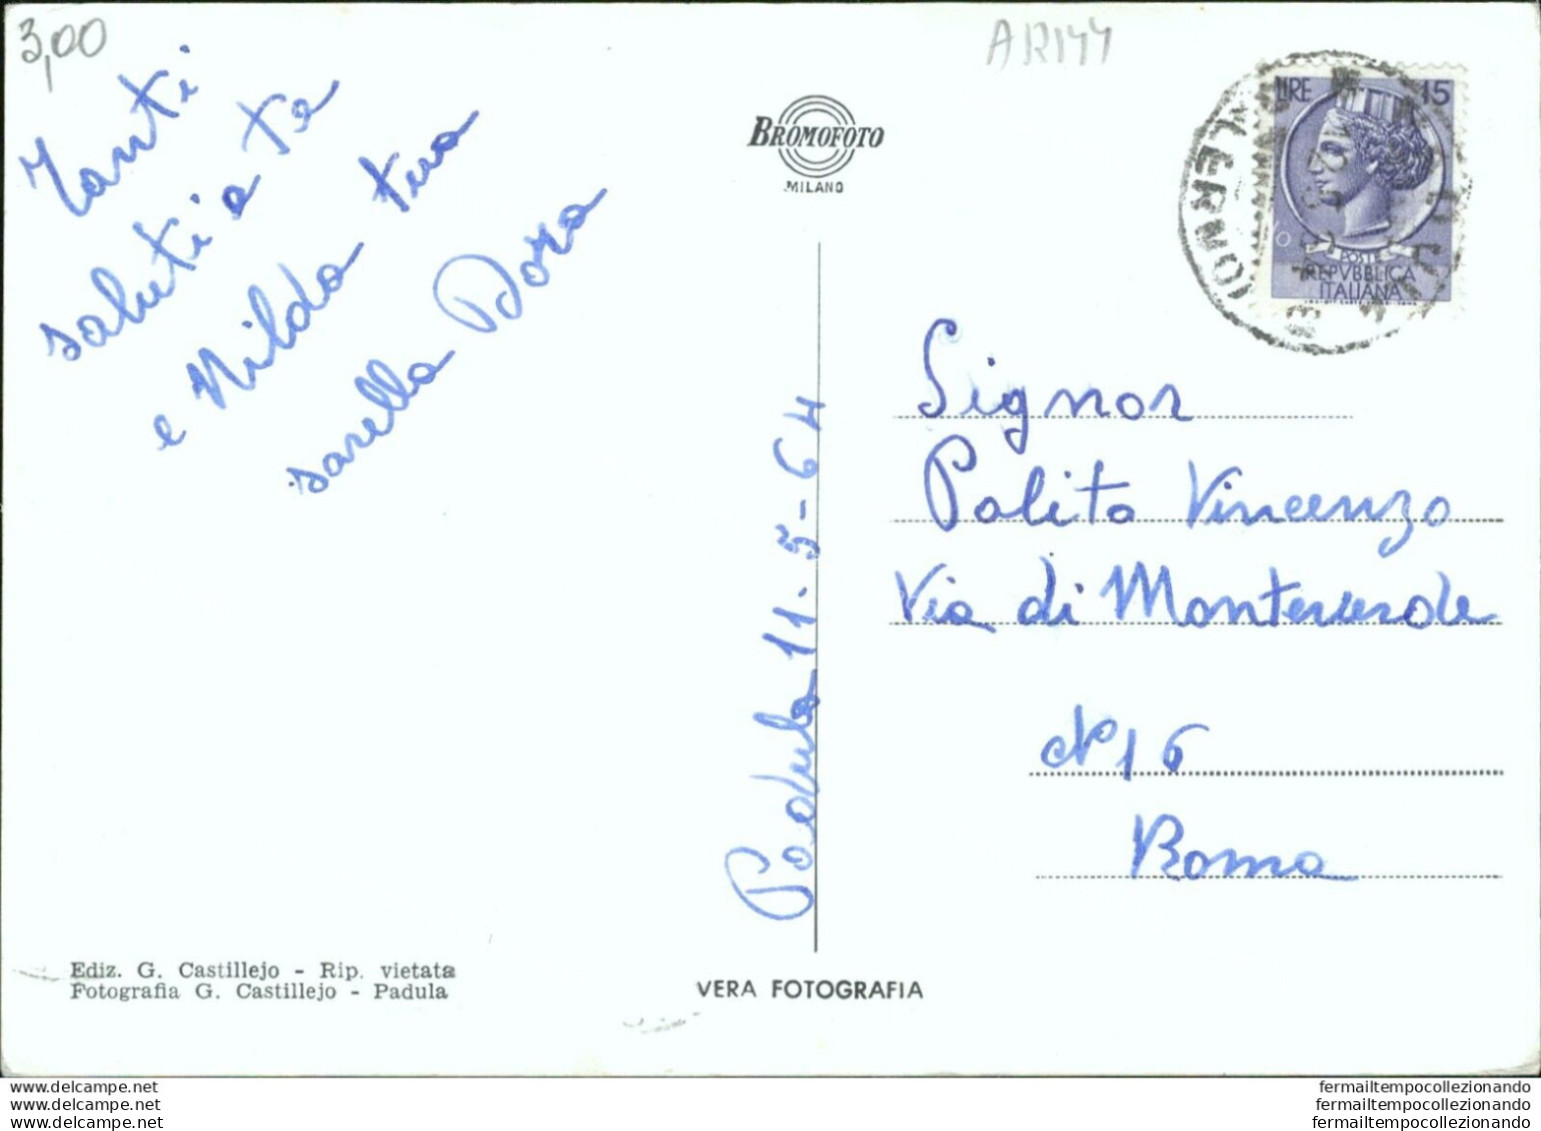 3,00
AR144
Tanti
saluti a te
e Nilda tua
sorella Dora
BROMOFOTO
MILANO
LIRE 15
POSTE
REPVBBLICA
ITALIANA
Padula 11-5-64
Signor
Polito Vincenzo
Via di Monteverde
N° 16
Roma
Ediz. G. Castillejo - Rip. vietata
Fotografia G. Castillejo - Padula
VERA FOTOGRAFIA
www.delcampe.net
www.delcampe.net
www.delcampe.net
fermailtempocollezionando
fermailtempocollezionando
fermailtempocollezionando